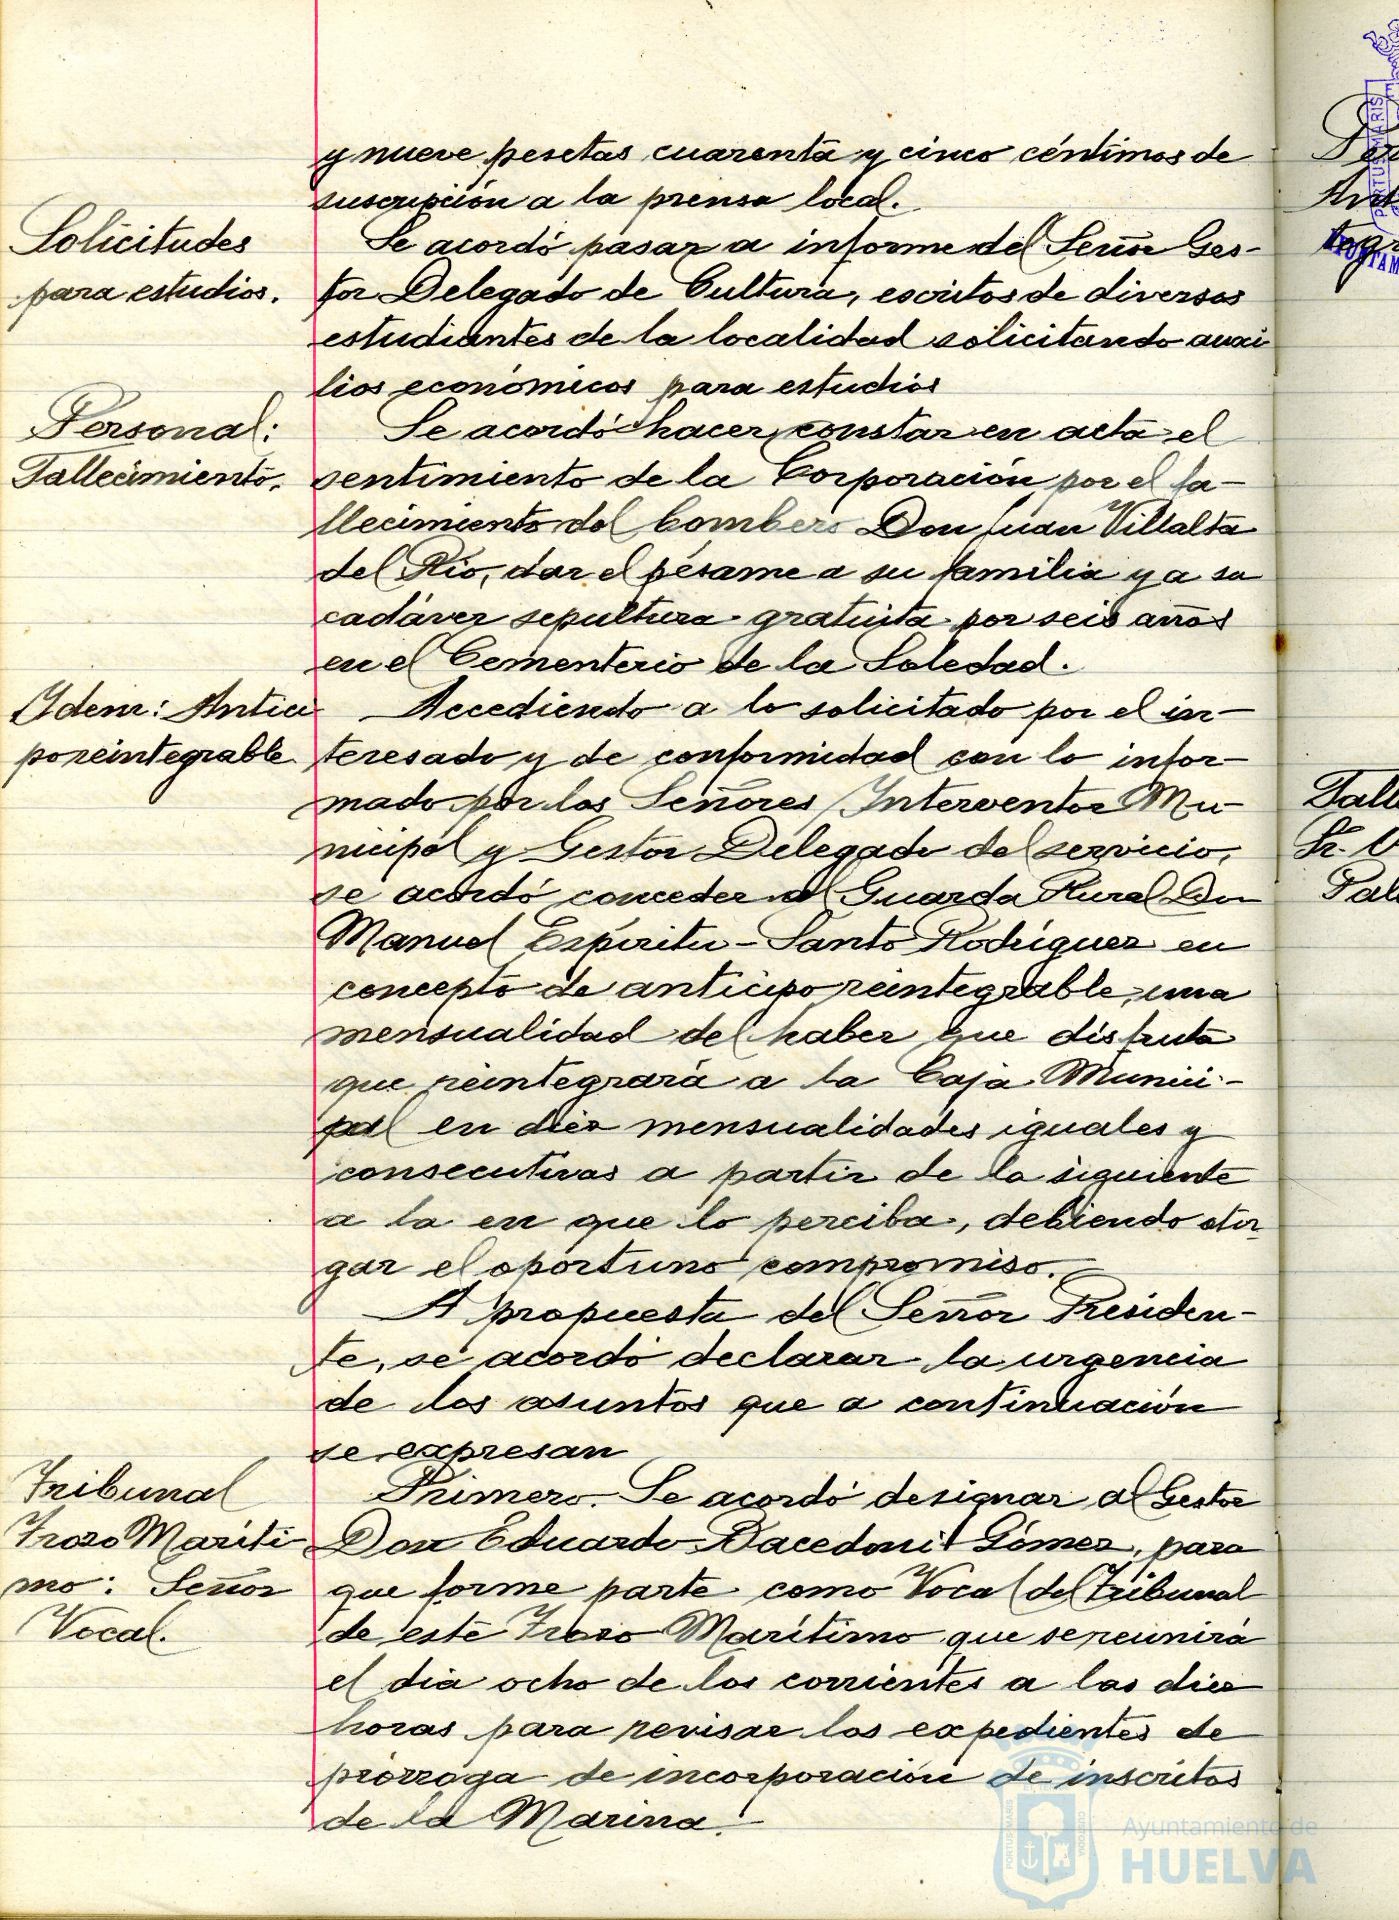 y nueve pesetas cuarenta y cinco céntimos de
suscripción a la prensa local.
Solicitudes
para estudios.
Se acordó pasar a informe del Señor Ges-
tor Delegado de Cultura, escritos de diversos
estudiantes de la localidad solicitando auxi
lios económicos para estudios
Personal:
Fallecimiento.
Se acordó hacer constar en acta el
sentimiento de la Corporación por el fa-
llecimiento del bombero Don Juan Villalta
del Río, dar el pésame a su familia y a su
cadáver sepultura gratuita por seis años
en el Cementerio de la Soledad.
Idem: Antici
po reintegrable
Accediendo a lo solicitado por el in-
teresado y de conformidad con lo infor-
mado por los Señores Interventor Mu-
nicipal y Gestor Delegado del servicio,
se acordó conceder al Guarda Rural Don
Manuel Espíritu-Santo Rodríguez en
concepto de anticipo reintegrable, una
mensualidad del haber que disfruta
que reintegrará a la Caja Munici-
pal en diez mensualidades iguales y
consecutivas a partir de la siguiente
a la en que lo perciba, debiendo otor
gar el oportuno compromiso.
A propuesta del Señor Presiden-
te, se acordó declarar la urgencia
de los asuntos que a continuación
se expresan
Tribunal
Trozo Maríti
mo: Señor
Vocal.
Primero. Se acordó designar al Gestor
Don Eduardo Gómez, para
que forme parte como Vocal del Tribunal
de este Trozo Marítimo que se reunirá
el día ocho de los corrientes a las diez
horas para revisar los expedientes de
prórroga de incorporación de inscritos
de la Marina.
Ayuntamiento de
HUELVA
PORTUS MARIS